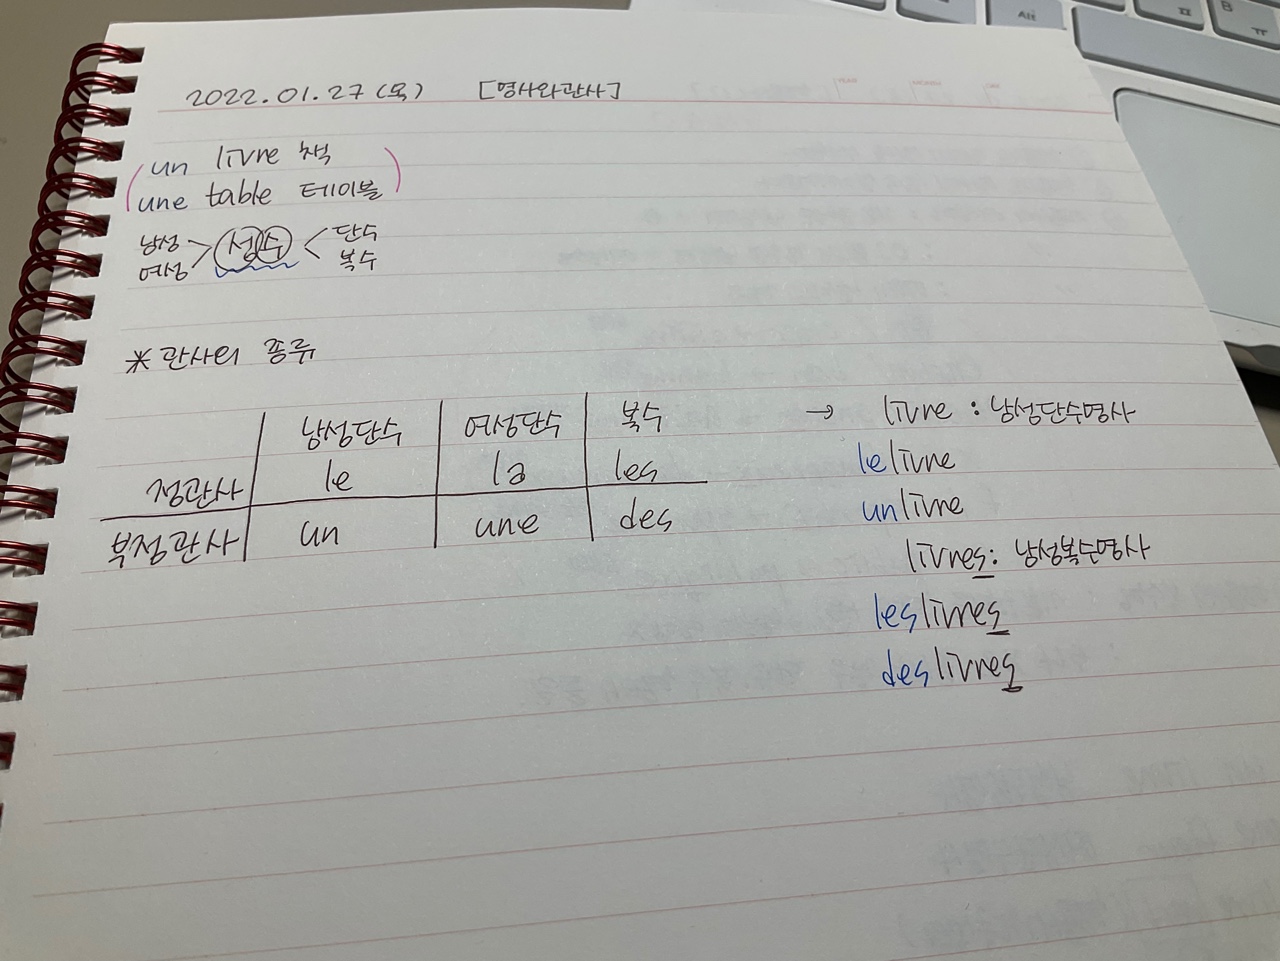 2022.01.27(목) [명사와관사]
un livre 책
une table 테이블
남성 > 성수 < 단수
여성 복수
* 관사의 종류
남성단수 여성단수 복수
정관사 le la les
부정관사 un une des
→ livre : 남성단수명사
le livre
un livre
livres : 남성복수명사
les livres
des livres
Alt ㅍ B ㅠ